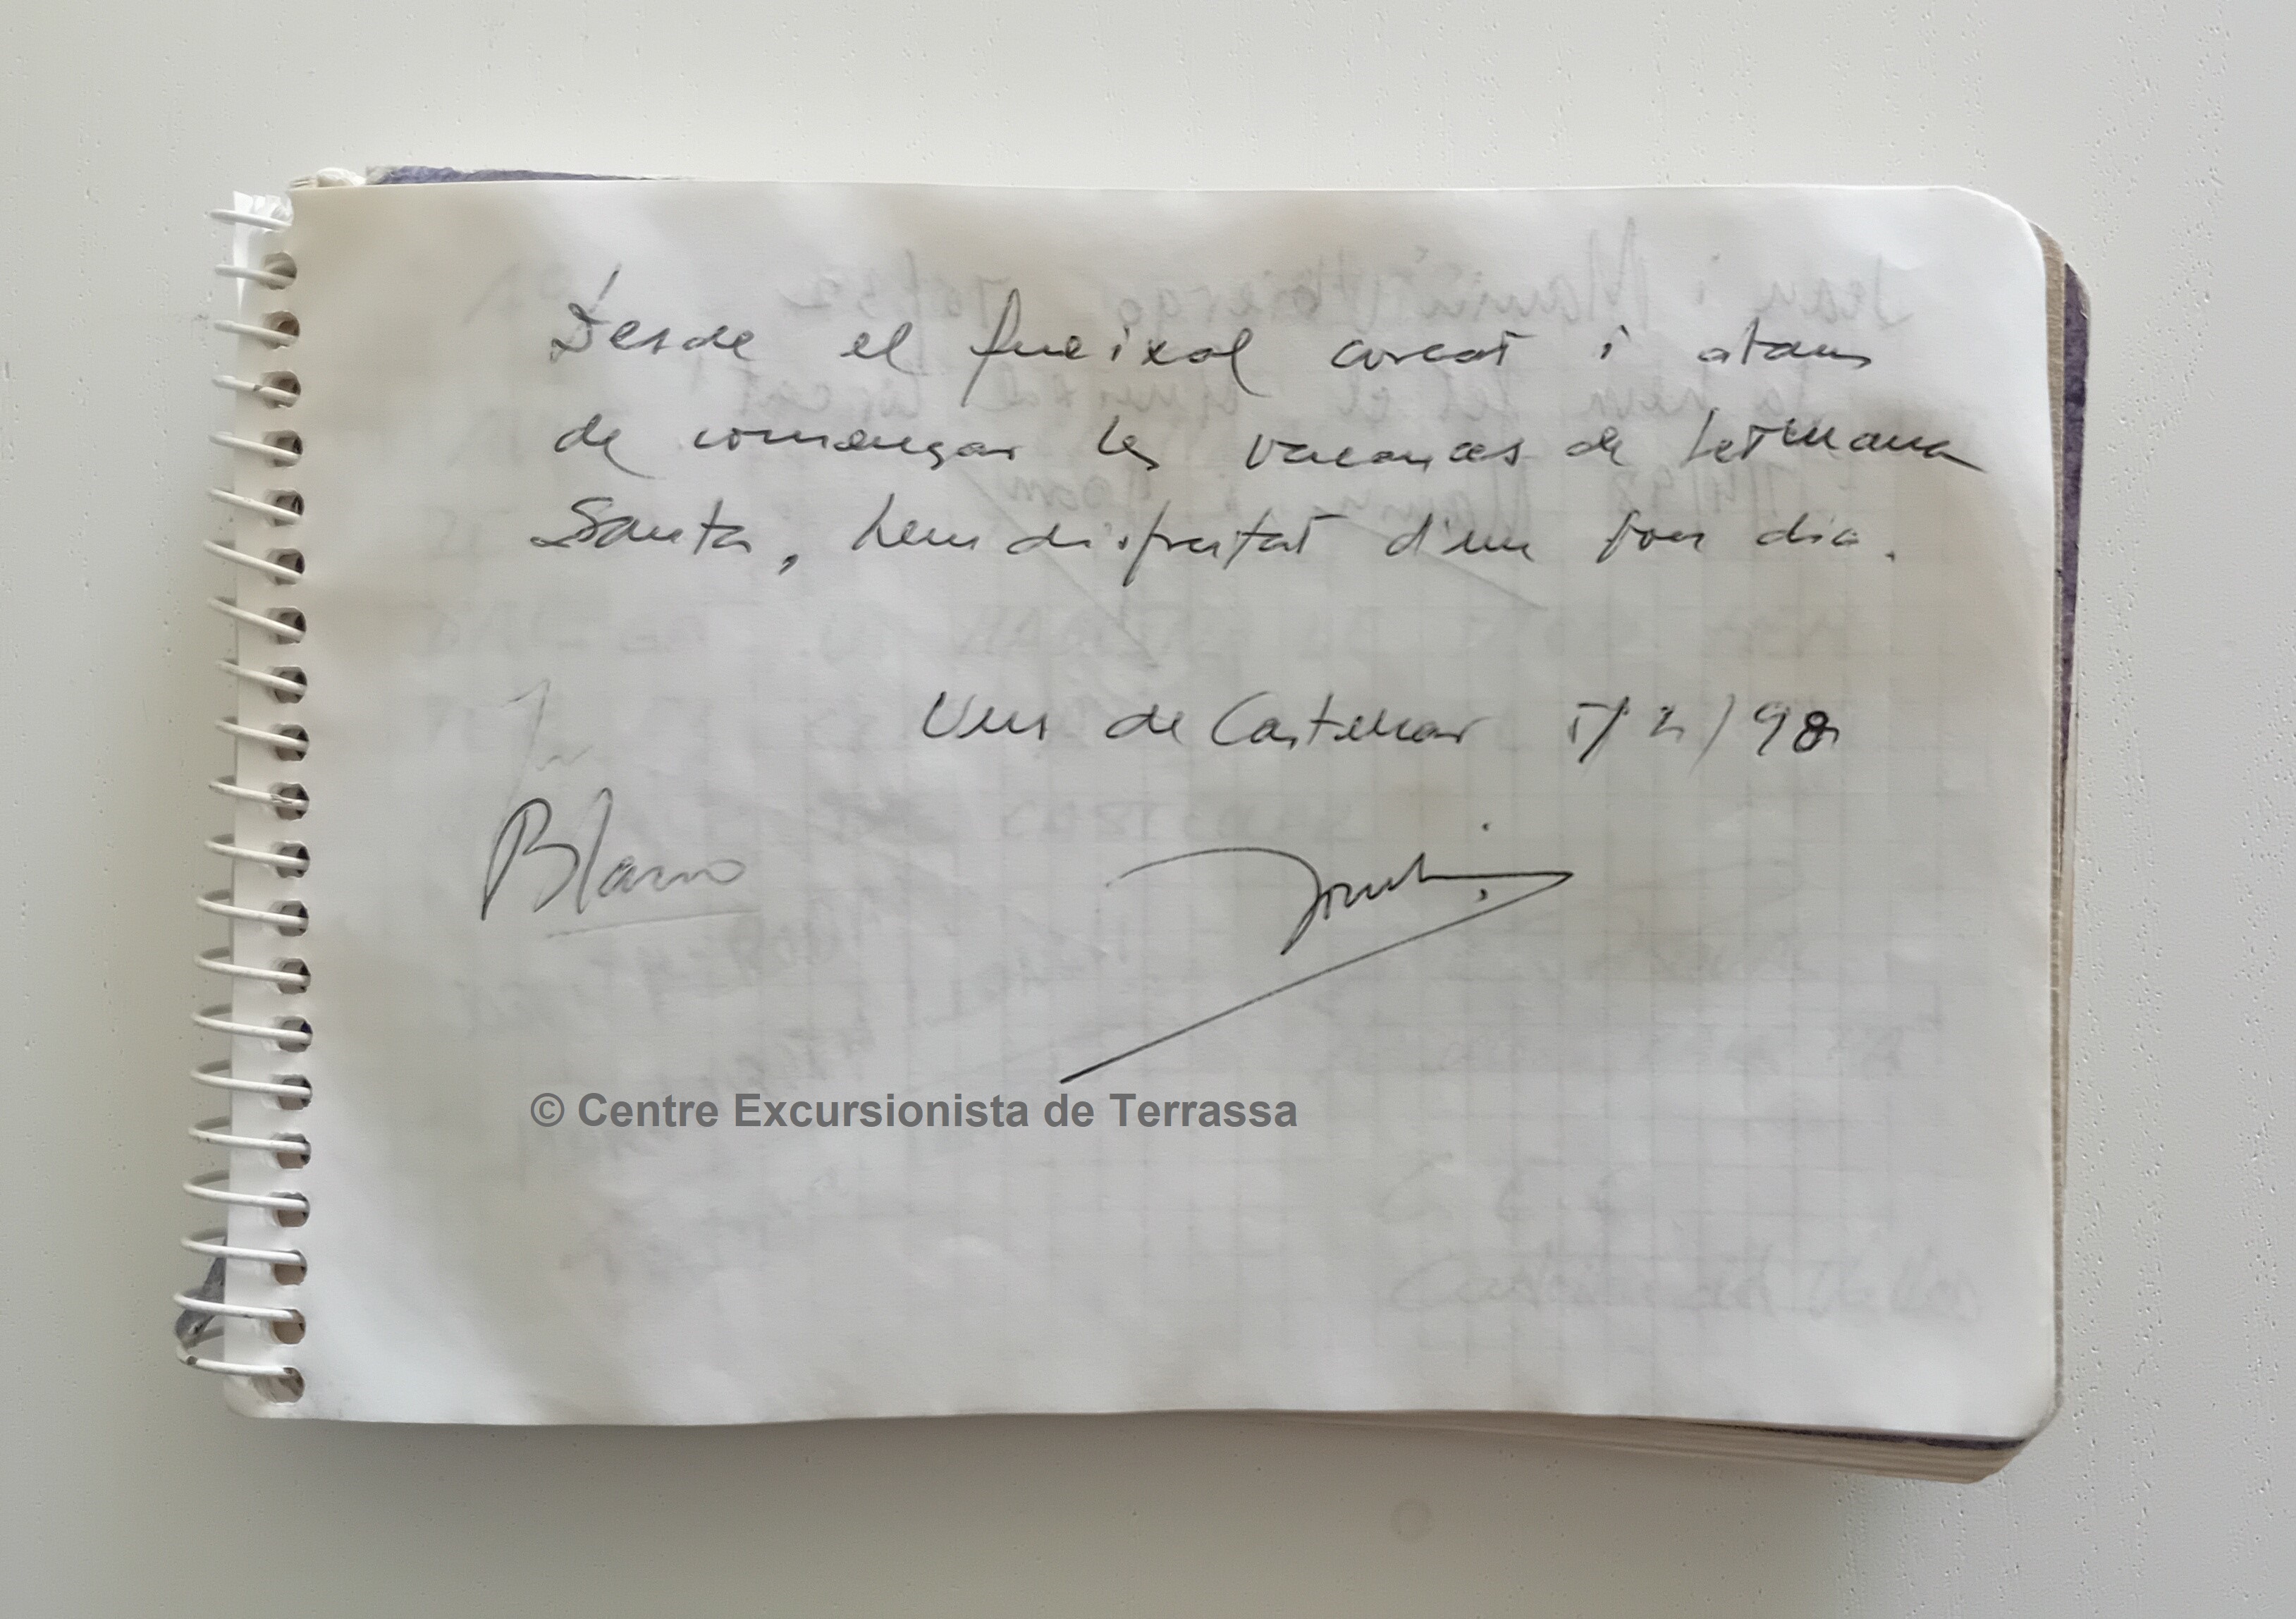 Desde el queixal corcat i atans
de començar les vacances de Setmana
Santa, hem disfrutat d'un bon dia.
Uns de Castellar 5/4/98
Blanco
© Centre Excursionista de Terrassa